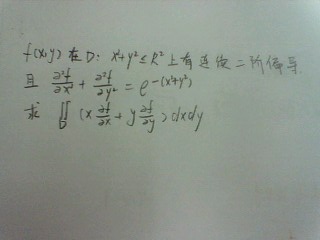 f(x,y) 在 D: x²+y² ≤ R² 上有连续二阶偏导
且 ∂²f/∂x² + ∂²f/∂y² = e^-(x²+y²)
求 ∬_D (x ∂f/∂x + y ∂f/∂y) dxdy